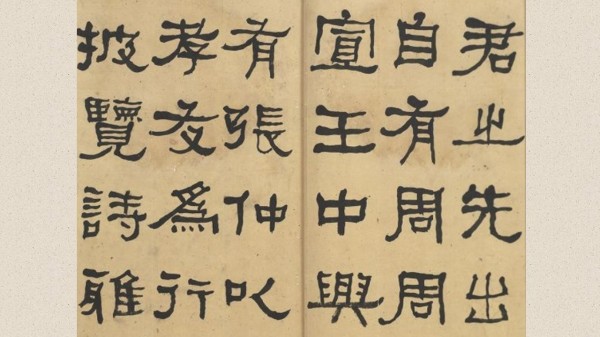 君之先出
自有周周
宣王中興
有張仲以
孝友爲行
披覽詩雅